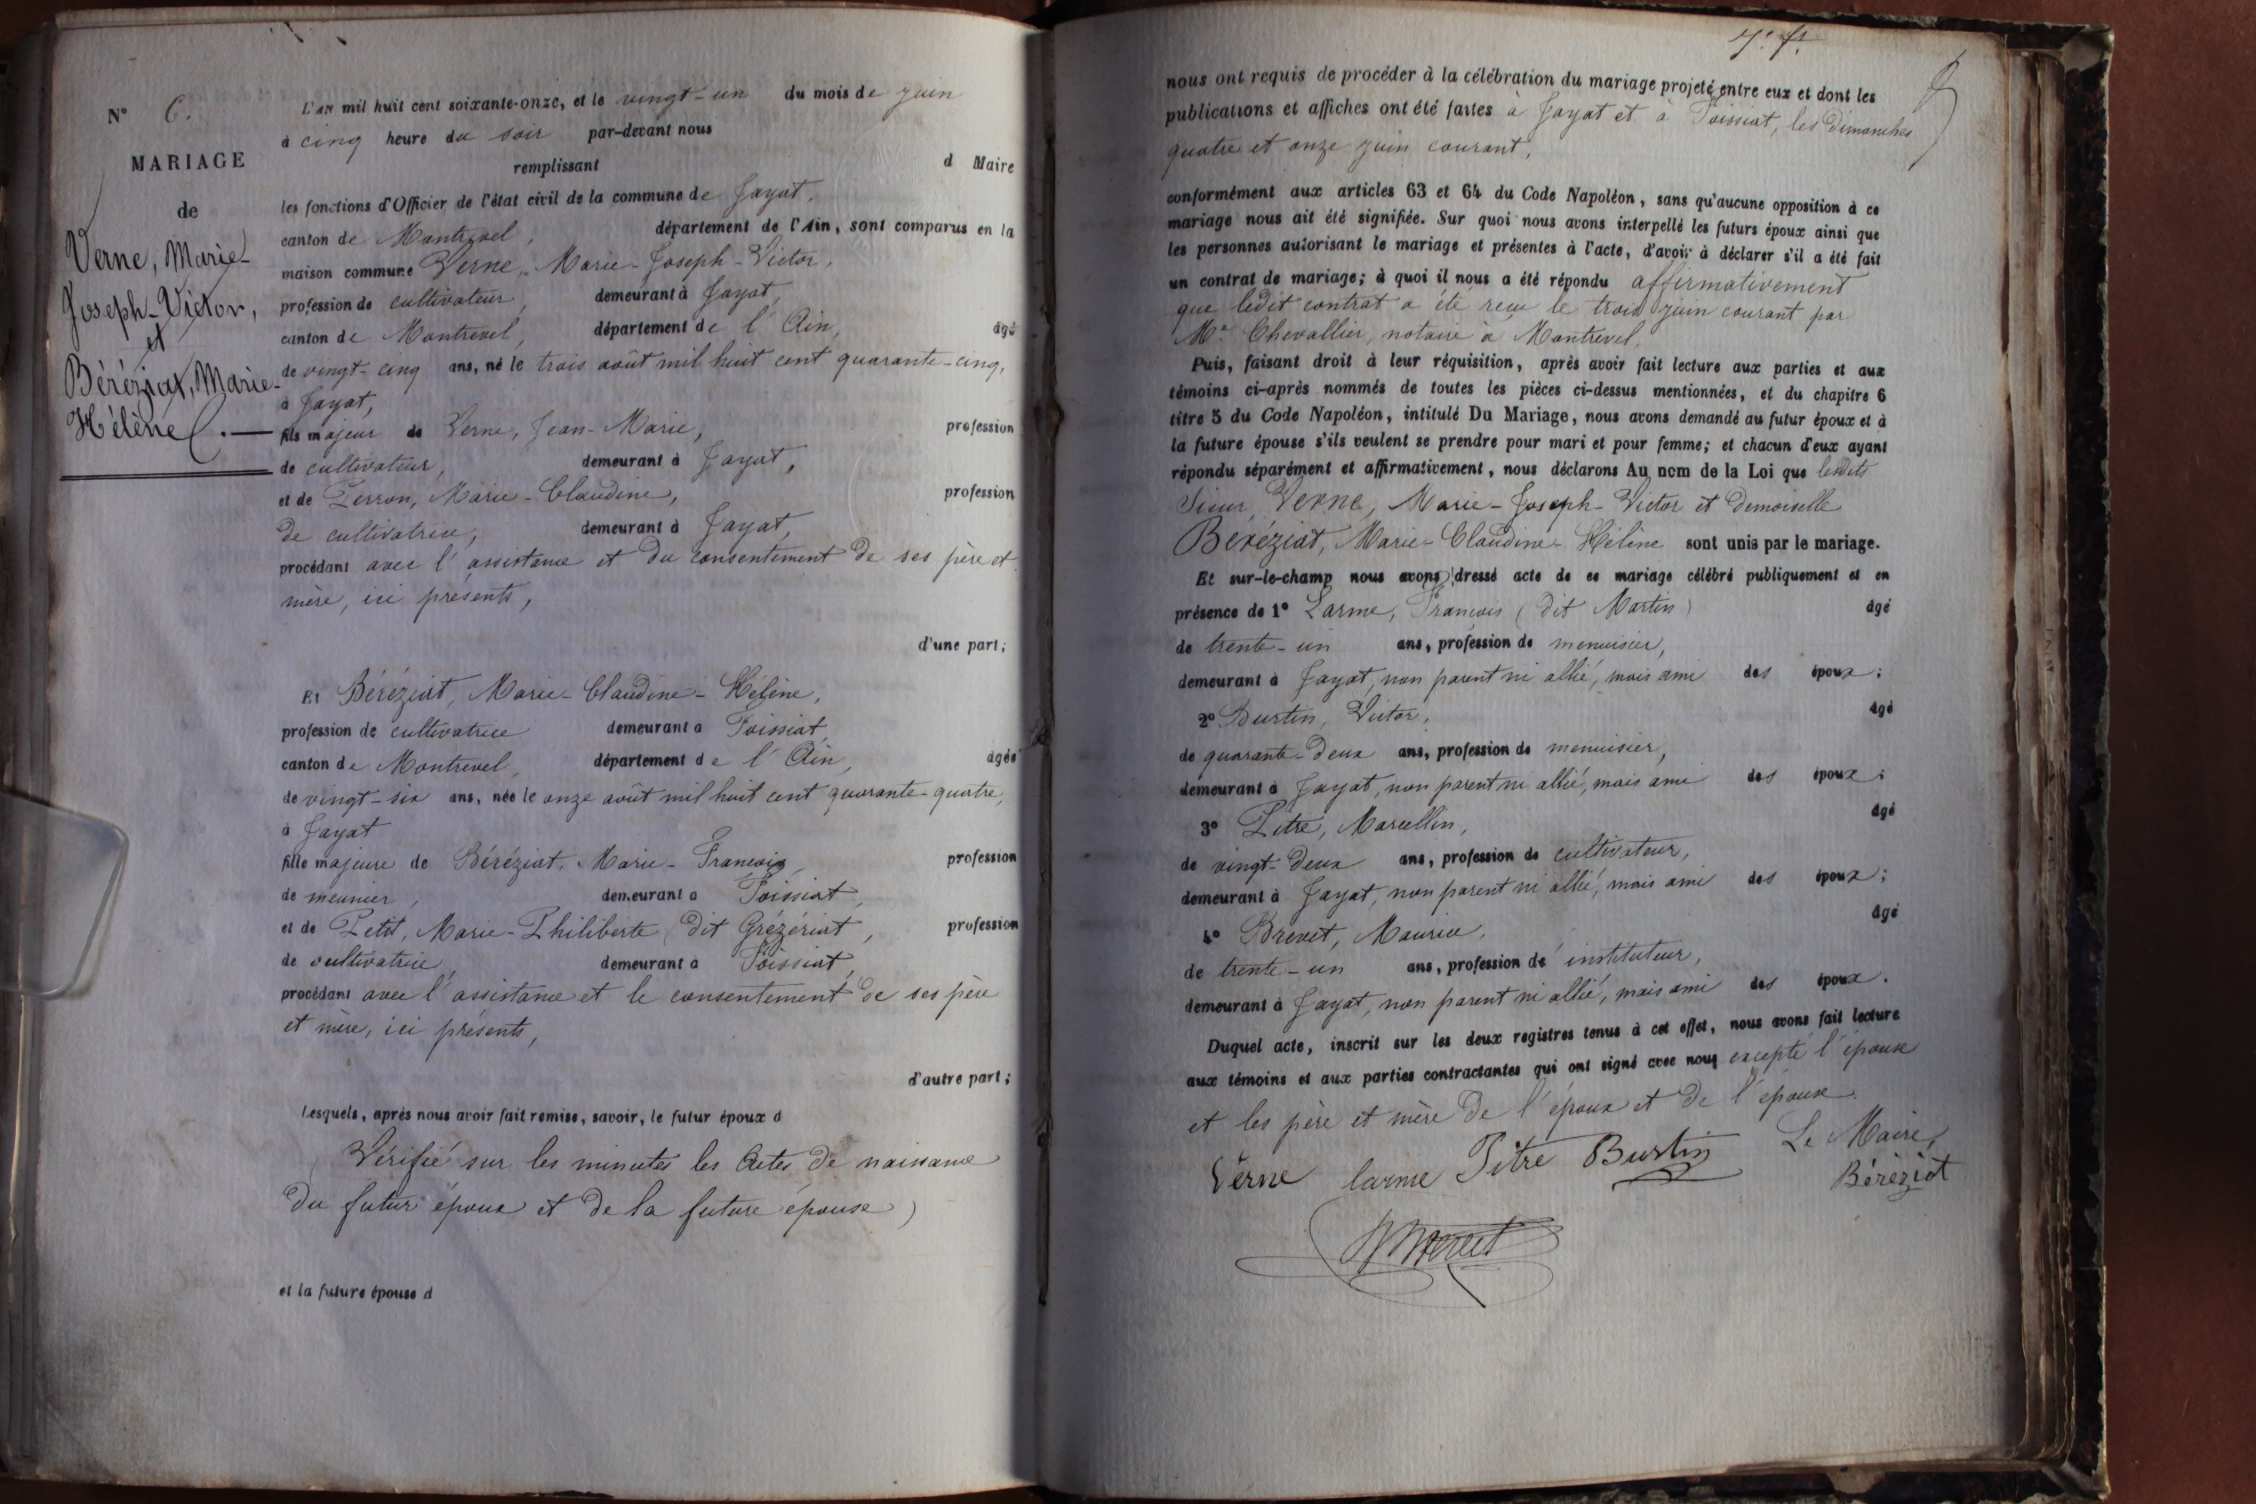 N° 6.
MARIAGE
de
Verne, Marie-
Joseph-Victor,
et
Béréziat, Marie-
Hélène.—
L'an mil huit cent soixante-onze, et le vingt-un du mois de juin
à cinq heure du soir par-devant nous
remplissant d Maire
les fonctions d'Officier de l'état civil de la commune de Jayat,
canton de Montrevel, département de l'Ain, sont comparus en la
maison commune Verne, Marie-Joseph-Victor,
profession de cultivateur, demeurant à Jayat,
canton de Montrevel, département de l'Ain, âgé
de vingt-cinq ans, né le trois août mil huit cent quarante-cinq,
à Jayat,
fils majeur de Verne, Jean-Marie, profession
de cultivateur, demeurant à Jayat,
et de Perron, Marie-Claudine, profession
de cultivatrice, demeurant à Jayat,
procédant avec l'assistance et du consentement de ses père et
mère, ici présents,
d'une part;
Et Béréziat, Marie-Claudine-Hélène,
profession de cultivatrice demeurant à Foissiat,
canton de Montrevel, département de l'Ain, âgée
de vingt-six ans, née le onze août mil huit cent quarante-quatre,
à Jayat
fille majeure de Béréziat, Marie-François, profession
de meunier, demeurant à Foissiat,
et de Petit, Marie-Philiberte (dit Grézériat, profession
de cultivatrice, demeurant à Foissiat,
procédant avec l'assistance et le consentement de ses père
et mère, ici présents,
d'autre part;
Lesquels, après nous avoir fait remise, savoir, le futur époux d
Vérifié sur les minutes les Actes de naissance
du futur époux et de la future épouse)
et la future épouse d
7. f.
nous ont requis de procéder à la célébration du mariage projeté entre eux et dont les
publications et affiches ont été faites à Jayat et à Foissiat, les dimanches
quatre et onze juin courant,
conformément aux articles 63 et 64 du Code Napoléon, sans qu'aucune opposition à ce
mariage nous ait été signifiée. Sur quoi nous avons interpellé les futurs époux ainsi que
les personnes autorisant le mariage et présentes à l'acte, d'avoir à déclarer s'il a été fait
un contrat de mariage; à quoi il nous a été répondu affirmativement
que ledit contrat a été reçu le trois juin courant par
Me Chevallier, notaire à Montrevel.
Puis, faisant droit à leur réquisition, après avoir fait lecture aux parties et aux
témoins ci-après nommés de toutes les pièces ci-dessus mentionnées, et du chapitre 6
titre 5 du Code Napoléon, intitulé Du Mariage, nous avons demandé au futur époux et à
la future épouse s'ils veulent se prendre pour mari et pour femme; et chacun d'eux ayant
répondu séparément et affirmativement, nous déclarons Au nom de la Loi que lesdits
Sieur Verne, Marie-Joseph-Victor et demoiselle
Béréziat, Marie-Claudine-Hélène sont unis par le mariage.
Et sur-le-champ nous avons dressé acte de ce mariage célébré publiquement et en
présence de 1° Larme, François (dit Martin) âgé
de trente-un ans, profession de menuisier,
demeurant à Jayat, non parent ni allié, mais ami des époux;
2° Burtin, Victor, âgé
de quarante-deux ans, profession de menuisier,
demeurant à Jayat, non parent ni allié, mais ami des époux;
3° Pitre, Marcellin, âgé
de vingt-deux ans, profession de cultivateur,
demeurant à Jayat, non parent ni allié, mais ami des époux;
4° Brevet, Maurice, âgé
de trente-un ans, profession de instituteur,
demeurant à Jayat, non parent ni allié, mais ami des époux.
Duquel acte, inscrit sur les deux registres tenus à cet effet, nous avons fait lecture
aux témoins et aux parties contractantes qui ont signé avec nous excepté l'épouse
et les père et mère de l'époux et de l'épouse.
Verne larme Pitre Burtin Le Maire,
Béréziat
Brevet